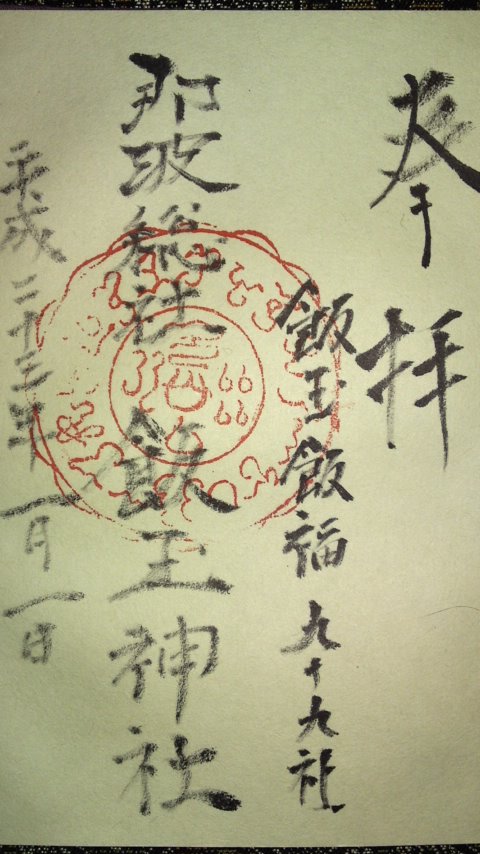 奉拝
飯玉飯福九十九社
那波総社飯玉神社
平成二十三年一月一日